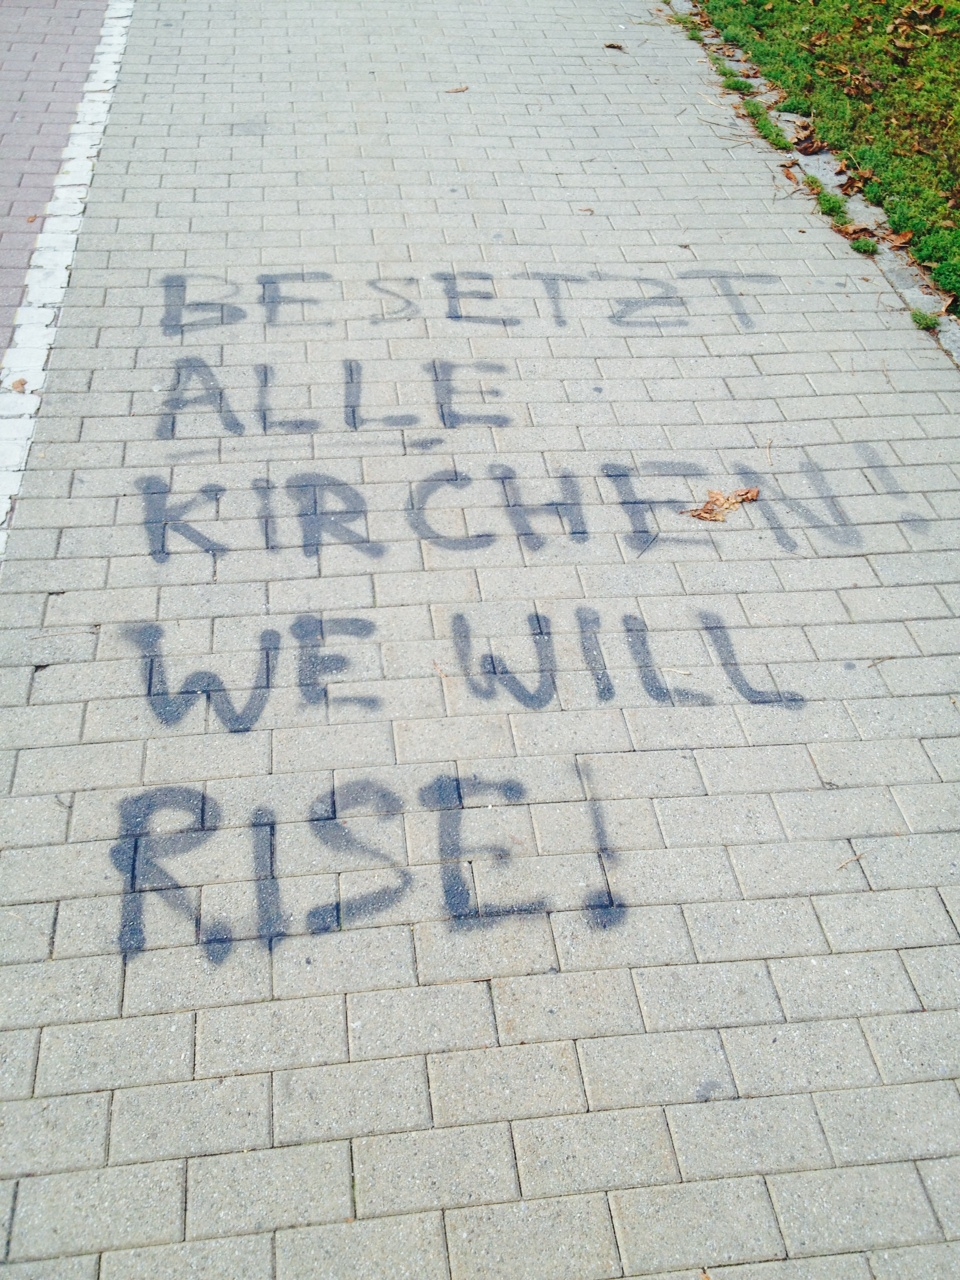 BESETZT
ALLE
KIRCHEN!
WE WILL
RISE!